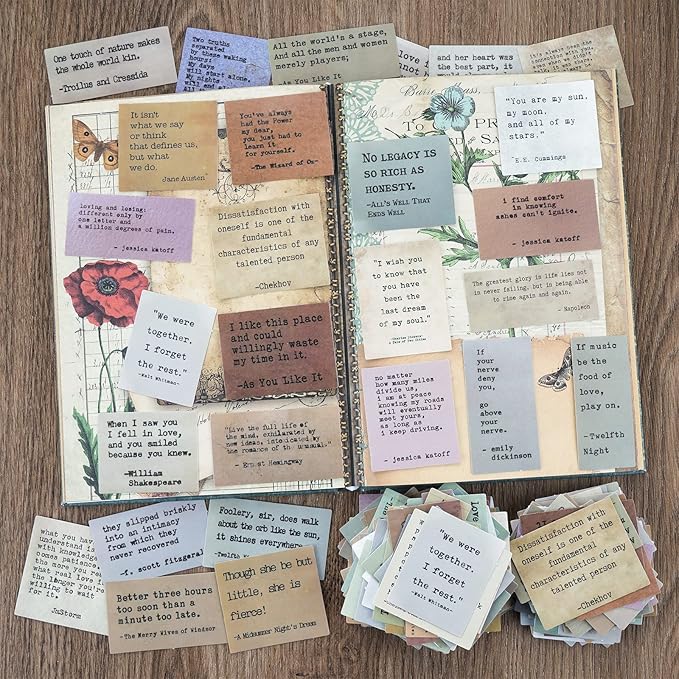 One touch of nature makes
the whole world kin.
-Troilus and Cressida
Two truths
separated
by these waking
hours:
My days
will start alone.
My nights
All the world's a stage,
And all the men and women
merely players;
-As You Like It
love i
and her heart was
the best part, it
It's always been the
connection with you,
It isn't
what we say
or think
that defines us,
but what
we do.
Jane Austen
You've always
had the Power
my dear,
you just had
to learn it
for yourself.
-The Wizard of Oz-
loving and losing:
different only by
one letter and
a million degrees of pain.
- jessica katoff
Dissatisfaction with
oneself is one of the
fundamental
characteristics of any
talented person
-Chekhov
"We were
together.
I forget
the rest."
-Walt Whitman-
I like this place
and could
willingly waste
my time in it.
-As You Like It
When I saw you
I fell in love,
and you smiled
because you knew.
-William
Shakespeare
"Live the full life of
the mind, exhilarated by
new ideas, intoxicated by
the romance of the unusual."
- Ernest Hemingway
No legacy is
so rich as
honesty.
-All's Well That
Ends Well
"You are my sun,
my moon,
and all of my
stars."
E.E. Cummings
i find comfort
in knowing
ashes can't ignite.
- jessica katoff
"I wish you
to know that
you have
been the
last dream
of my soul."
The greatest glory in life lies not
in never failing, but in being able
to rise again and again.
- Napoleon
no matter
how many miles
divide us,
i am at peace
knowing my roads
will eventually
meet yours,
as long as
i keep driving.
- jessica katoff
If
your
nerve
deny
you,
go
above
your
nerve.
- emily
dickinson
If music
be the
food of
love,
play on.
-Twelfth
Night
what you hav
understand is
with knowledg
comes patience,
the more you re
what real love i
the longer you're
willing to wait
for it.
JmStorm
they slipped briskly
into an intimacy
from which they
never recovered
-f. scott fitzgeral
Foolery, sir, does walk
about the orb like the sun,
it shines everywhere.
-Twelfth
Better three hours
too soon than a
minute too late.
-The Merry Wives of Windsor
Though she be but
little, she is
fierce!
-A Midsummer Night's Dream
"We were
together.
I forget
the rest."
-Walt Whitman-
Dissatisfaction with
oneself is one of the
fundamental
characteristics of any
talented person
-Chekhov